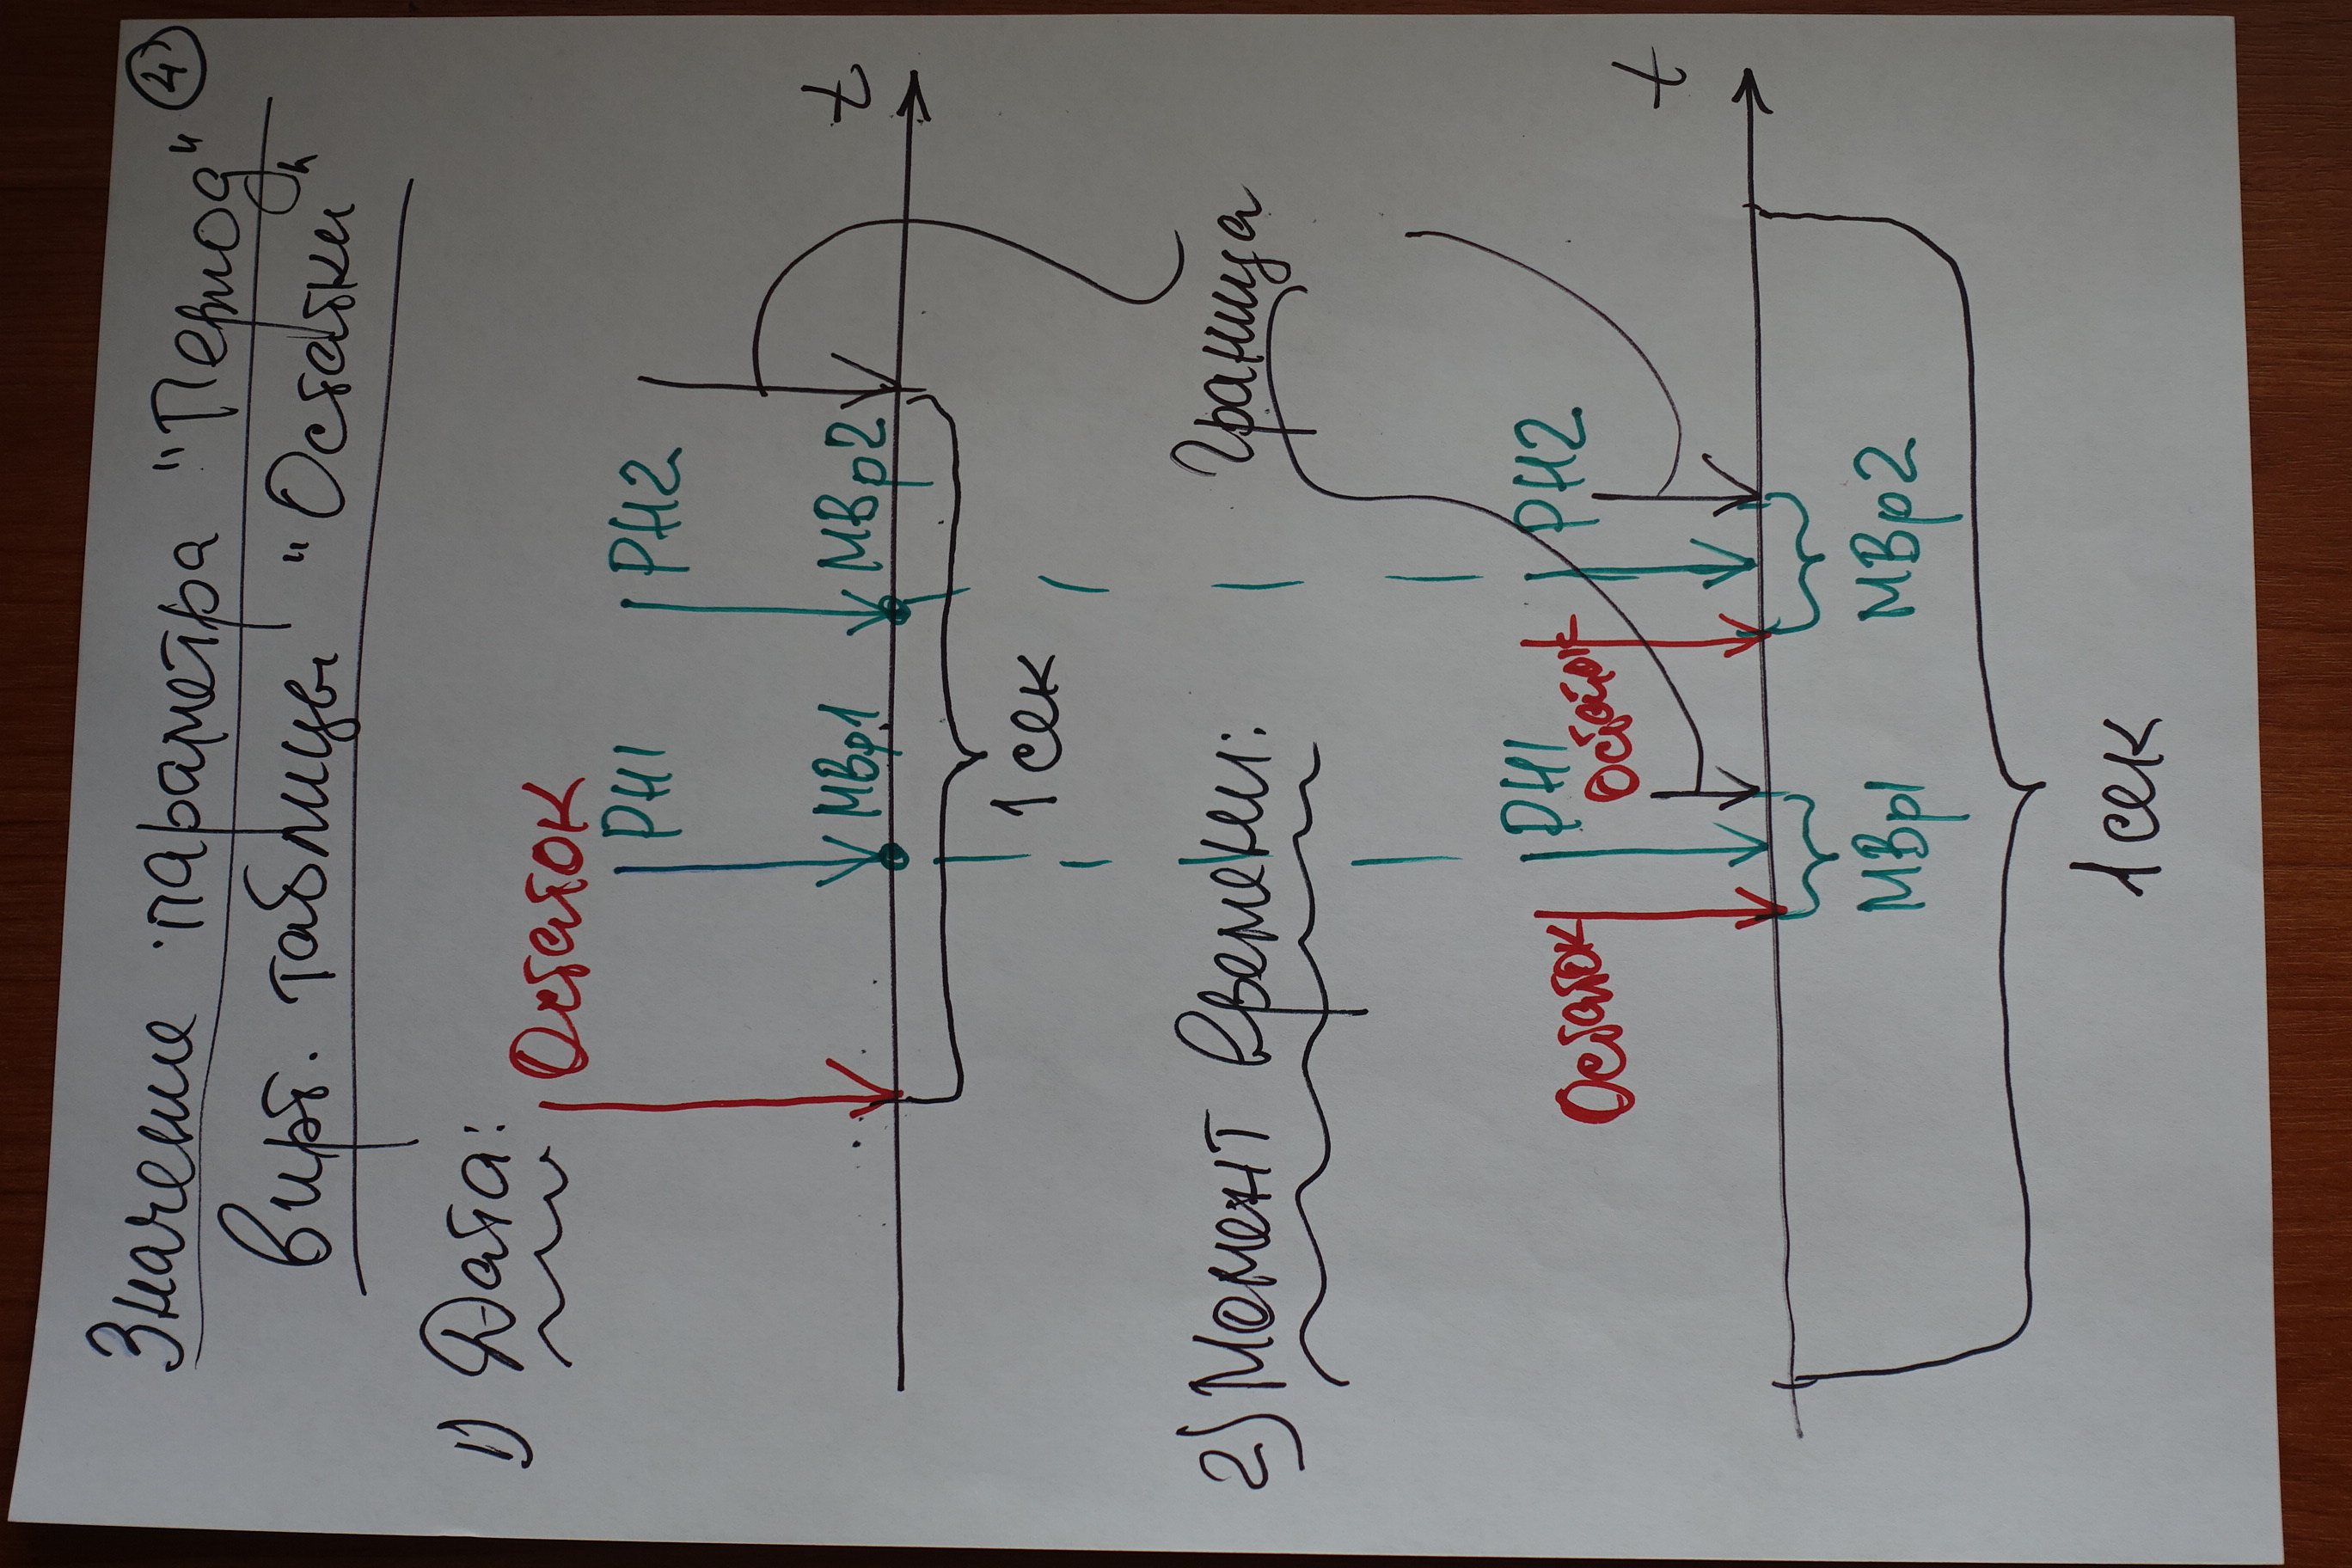 Значение параметра "Период" 4
вирт. таблицы "Остатки"
1) Дата:
Остаток
РН1 РН2
МВр1 МВр2 t
1 сек
2) Момент времени: Граница
РН1 РН2
Остаток Остаток
t
МВр1 МВр2
1 сек